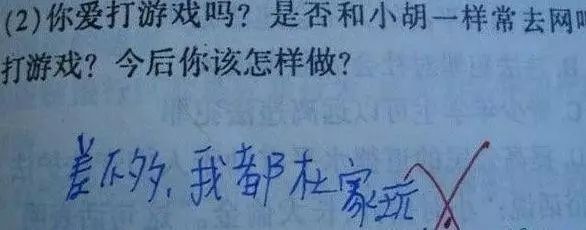 (2)你爱打游戏吗？是否和小胡一样常去网吧
打游戏？今后你该怎样做？
差不多，我都在家玩